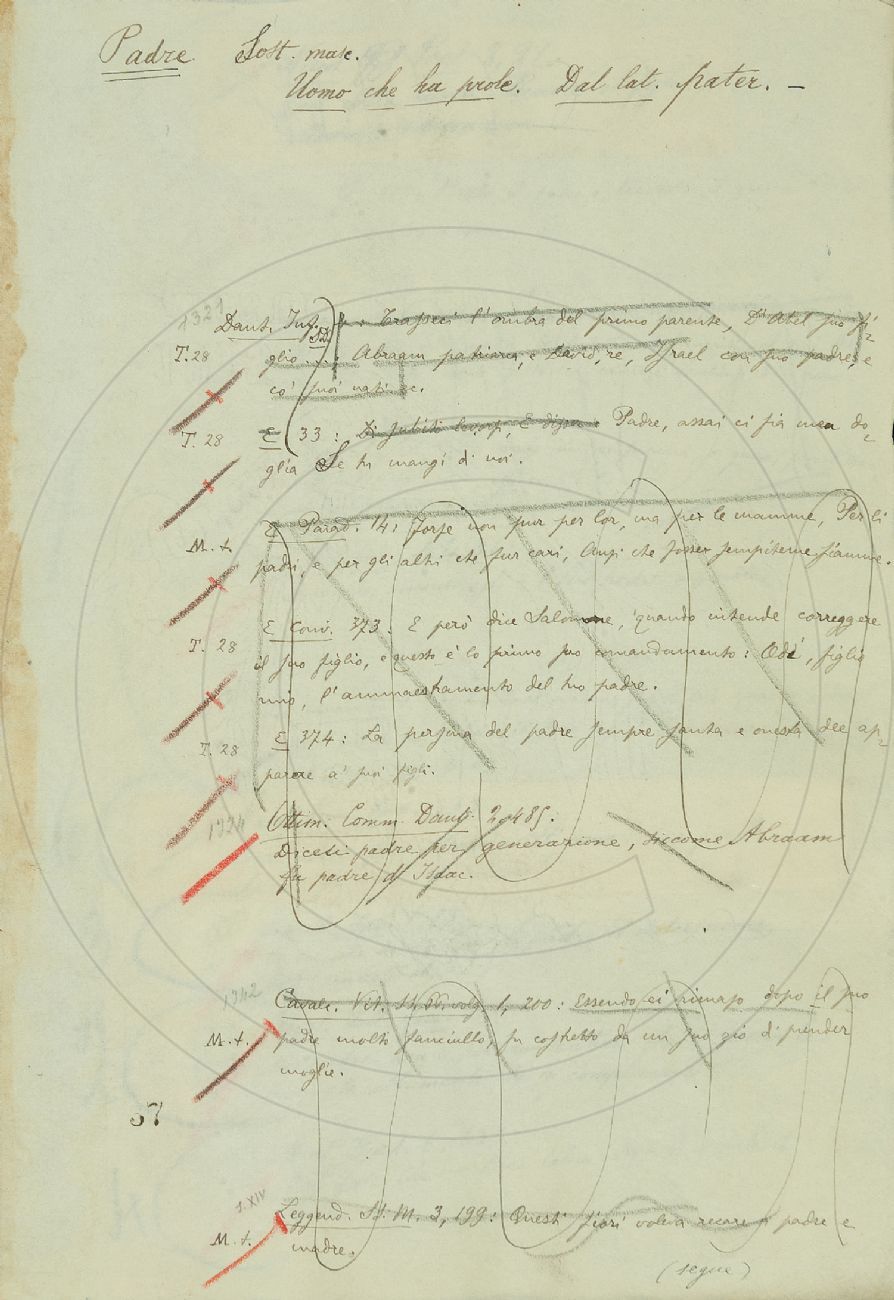 Padre Sost. masc.
Uomo che ha prole. Dal lat. pater. –
1321
Dant. Inf. : Trasseci l'ombra del primo parente, D'Abel suo fi-
T. 28 glio...: Abraam patriarca, e David, re, Israel con suo padre, e
co' suoi nati ec.
T. 28 E 33: Padre, assai ci fia men do-
glia Se tu mangi di noi.
M. t. E Parad. 14: Forse non pur per lor, ma per le mamme, Per li
padri, e per gli altri che fur cari, Anzi che fosser sempiterne fiamme.
E Conv. 373: E però dice Salomone, quando intende correggere
T. 28 il suo figlio, e questo è lo primo suo comandamento: Odi, figlio
mio, l'ammaestramento del tuo padre.
T. 28 E 374: La persona del padre sempre santa e onesta dee ap-
parere a' suoi figli.
1334
Ottim. Comm. Dant. 2, 485.
Dicesi padre per generazione, siccome Abraam
fu padre d' Isaac.
1342
Cavalc. Vit. SS. PP. volg. 1, 200: Essendo ei rimaso dopo il suo
M. t. padre molto fanciullo, fu costretto da un suo zio di prender
moglie.
37
S. XIV
Leggend. SS. M. 3, 199: Questi fiori voleva recare a padre e
M. t. madre.
(segue)